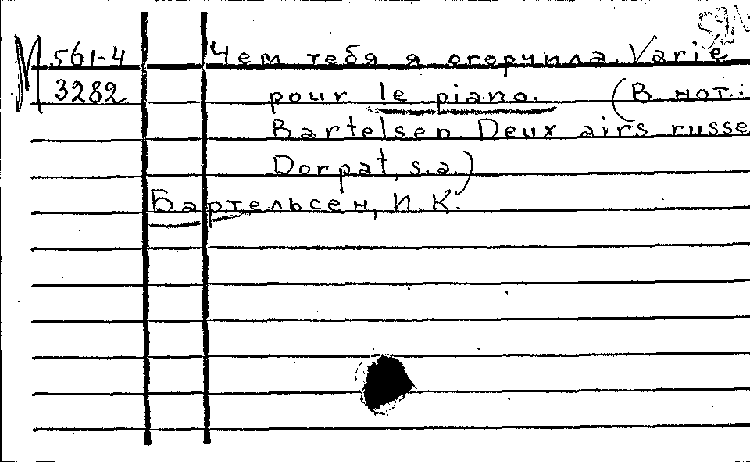 М 561-4 Чем тебя я огорчила. Varié
3282 pour le piano. (В нот.:
Bartelsen Deux airs russe
Dorpat, s.a.)
Бартельсен, И. К.